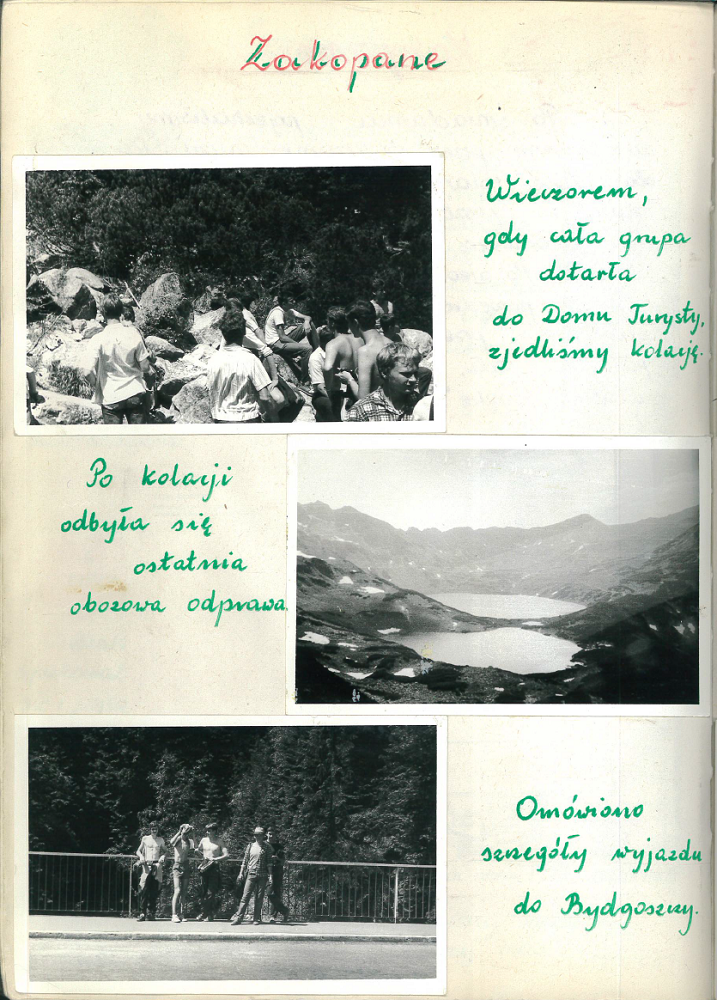 Zakopane
Wieczorem,
gdy cała grupa
dotarła
do Domu Turysty,
zjedliśmy kolację.
Po kolacji
odbyła się
ostatnia
obozowa odprawa.
Omówiono
szczegóły wyjazdu
do Bydgoszczy.